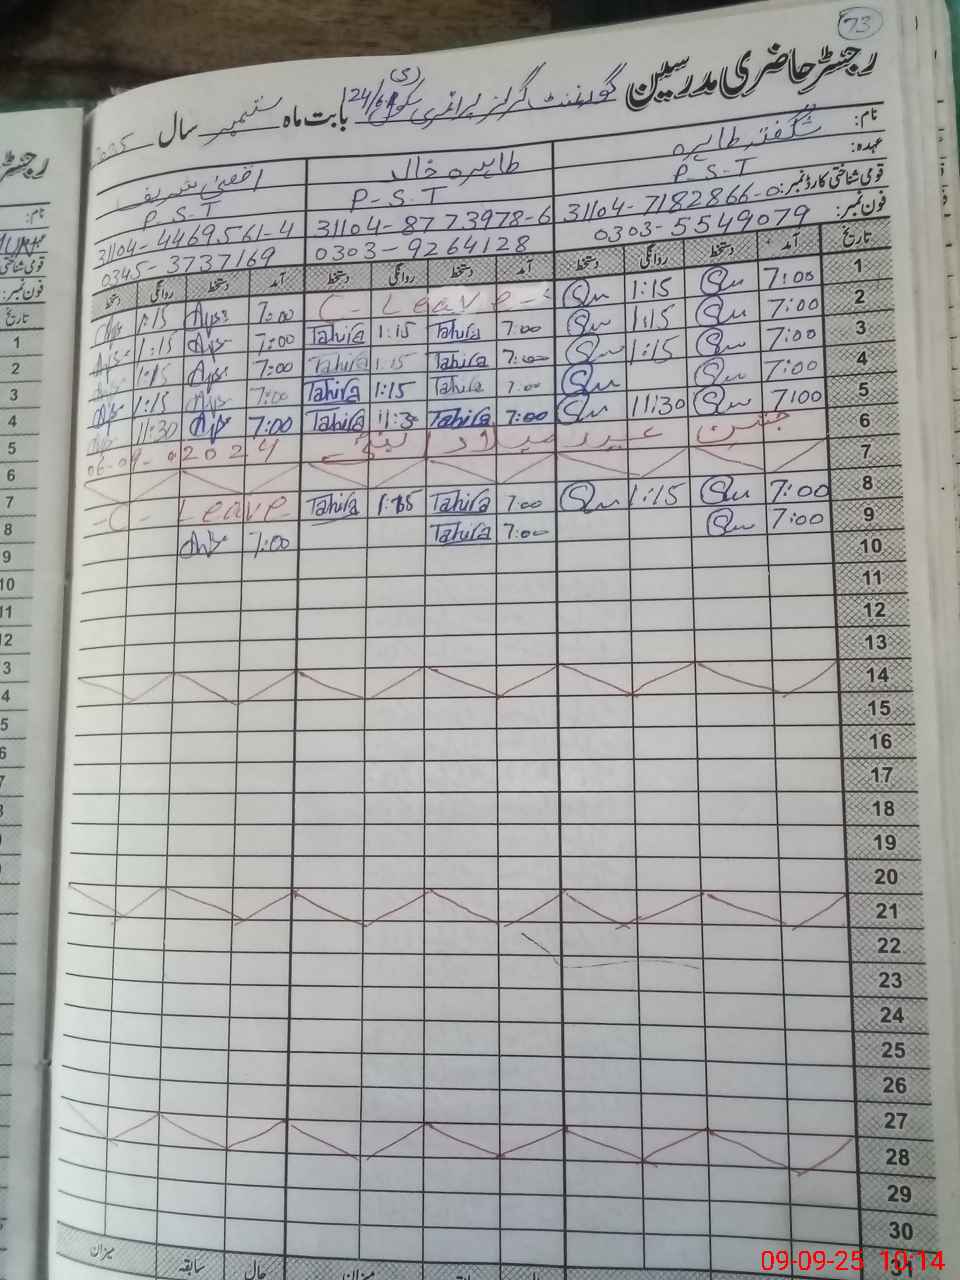 73
رجسٹر حاضری مدرسین گورنمنٹ گرلز پرائمری سکول بابت ماہ ستمبر سال
نام: شگفتہ طاہرہ طاہرہ خالد اقصیٰ شریف
عہدہ: P.S.T P-S-T P-S-T
قومی شناختی کارڈ نمبر: 31104-7182866-0 31104-8773978-6 31104-4469561-4
فون نمبر: 0303-5549079 0303-9264128 0345-3737169
تاریخ آمد دستخط روانگی دستخط آمد دستخط روانگی دستخط آمد دستخط روانگی دستخط
1 7:00 1:15 C- Leave- 7:00 1:15
2 7:00 1:15 7:00 Tahira 1:15 Tahira 7:00 1:15
3 7:00 1:15 7:00 Tahira 1:15 Tahira 7:00 1:15
4 7:00 7:00 Tahira 1:15 Tahira 7:00 1:15
5 7:00 11:30 7:00 Tahira 11:30 Tahira 7:00 11:30
6 جشن عید میلاد النبی 06-09-2024
7
8 7:00 1:15 7:00 Tahira 1:15 Tahira -C- Leave-
9 7:00 7:00 Tahira 7:00
10
11
12
13
14
15
16
17
18
19
20
21
22
23
24
25
26
27
28
29
30
31
میزان سابقہ حال میزان
رجسٹر
نام:
قومی شناختی
فون نمبر:
تاریخ
1
2
3
4
5
6
7
8
9
10
11
12
09-09-25 10:14